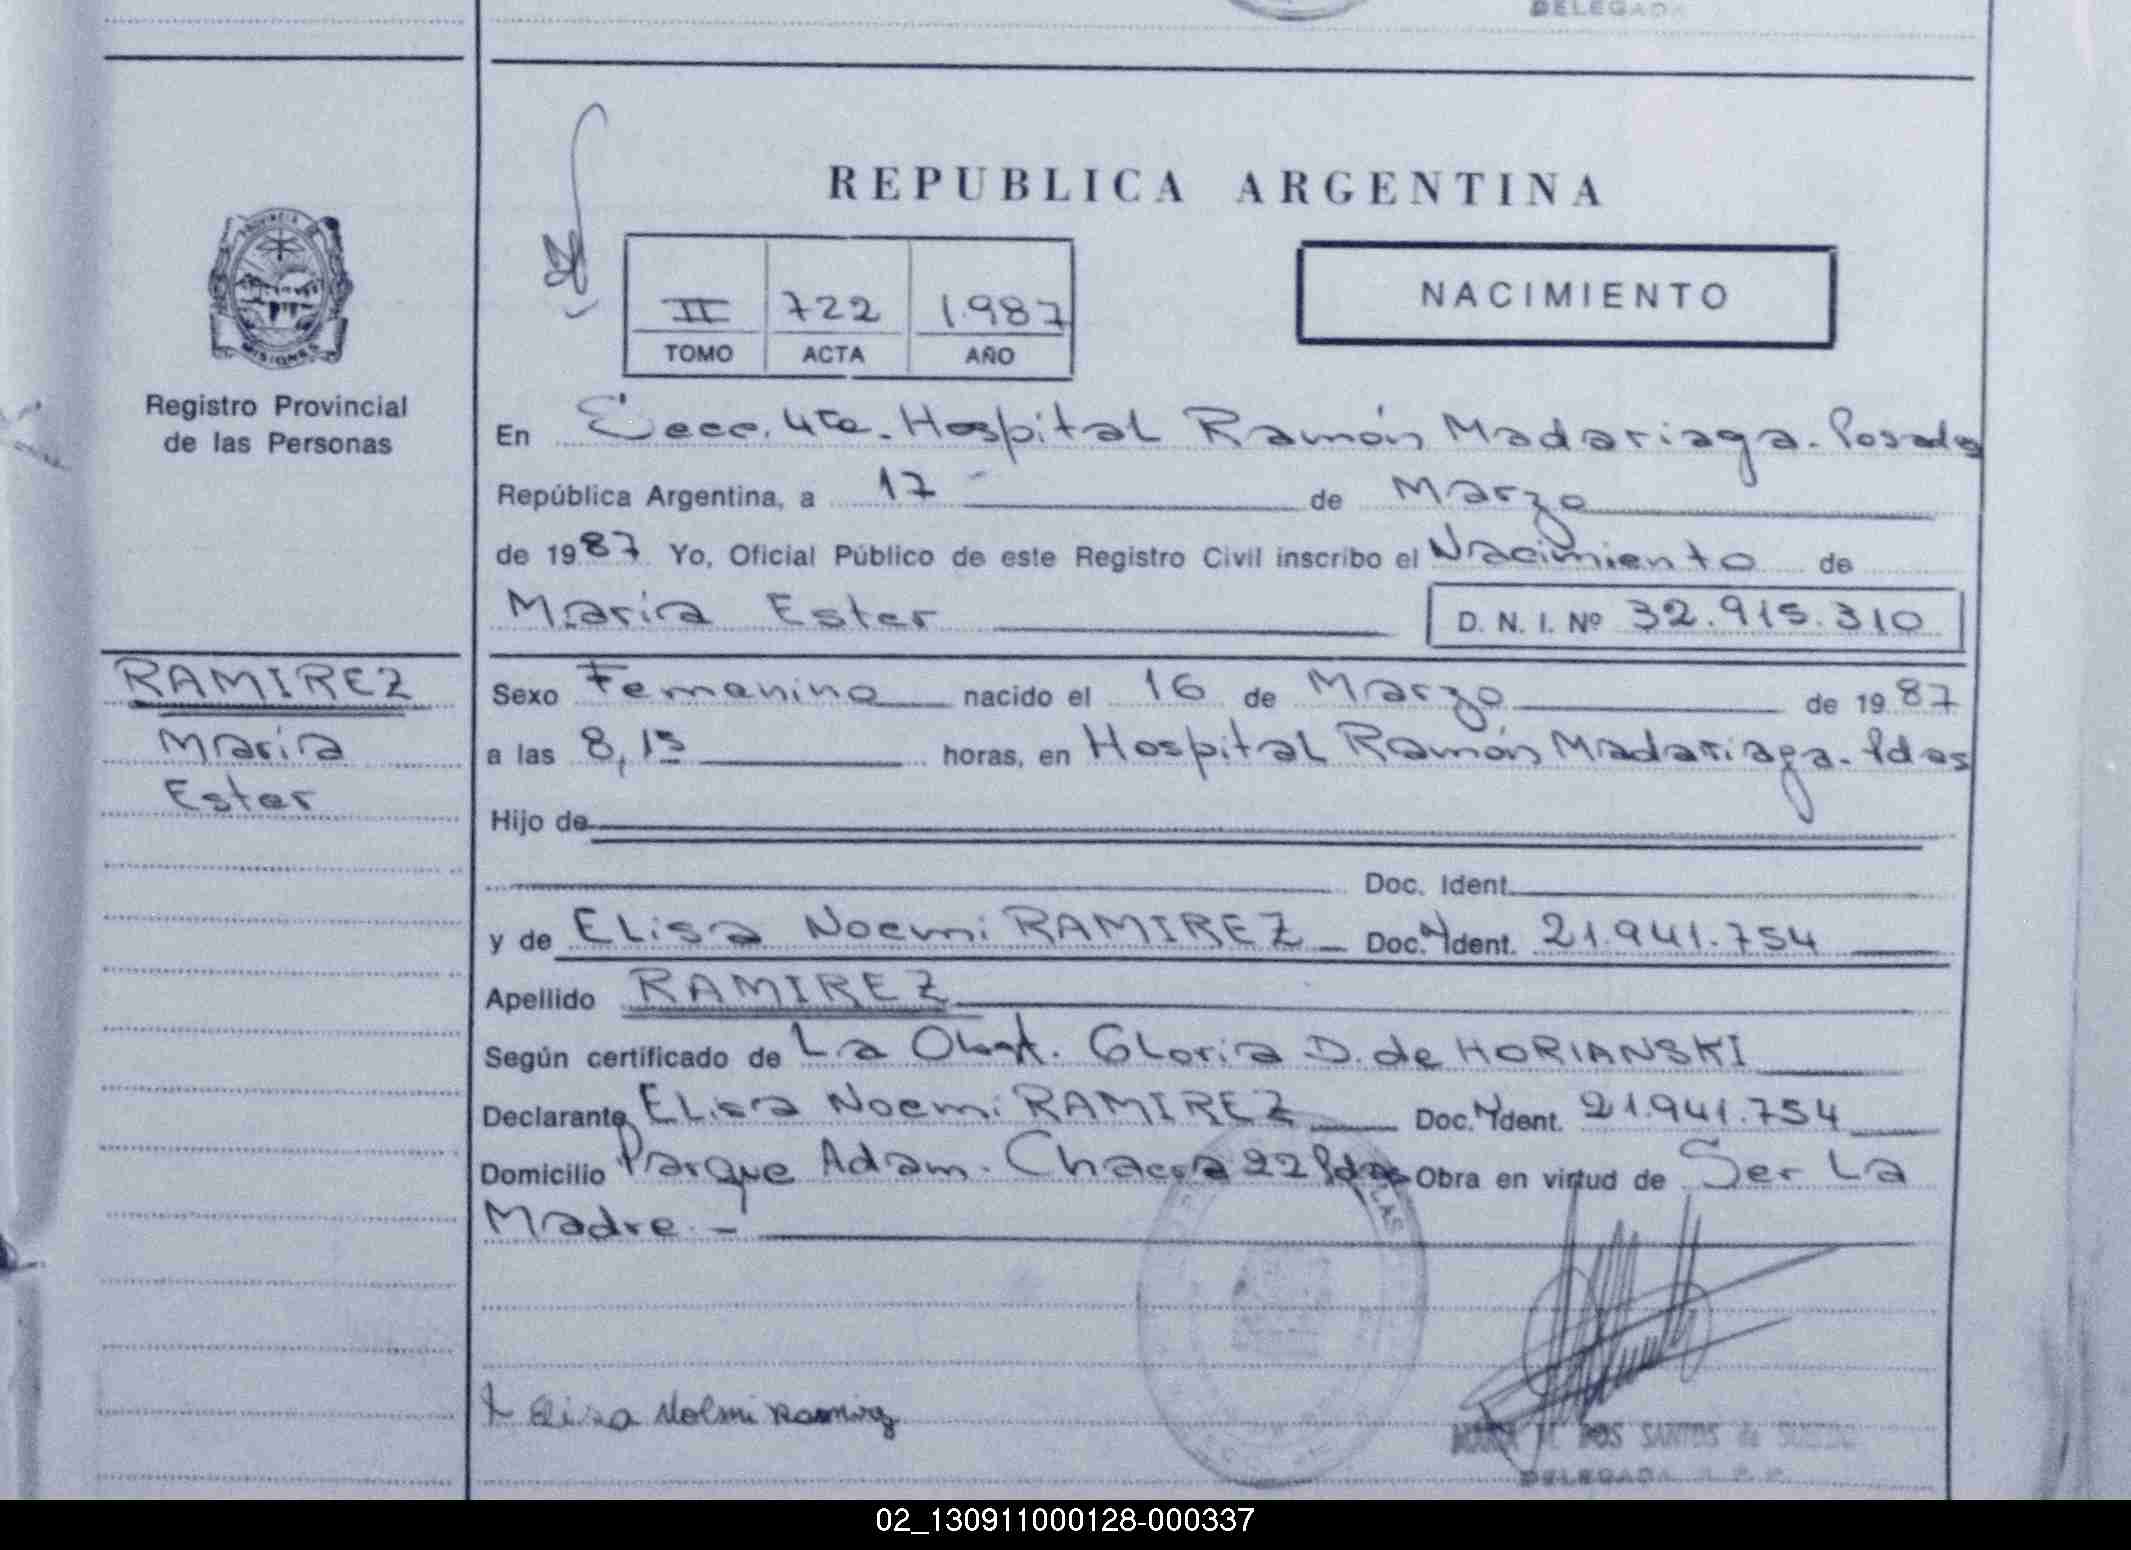 DELEGADA
REPUBLICA ARGENTINA
PROVINCIA DE
MISIONES
II 722 1.987
TOMO ACTA AÑO
NACIMIENTO
Registro Provincial
de las Personas
En Secc. 4ta. Hospital Ramón Madariaga. Posadas
República Argentina, a 17 de Marzo
de 1987 Yo, Oficial Público de este Registro Civil inscribo el Nacimiento de
María Ester D. N. I. Nº 32.915.310
RAMIREZ
María
Ester
Sexo Femenino nacido el 16 de Marzo de 1987
a las 8,15 horas, en Hospital Ramón Madariaga. Pdas
Hijo de
Doc. Ident.
y de ELisa Noemi RAMIREZ Doc. Ident. 21.941.754
Apellido RAMIREZ
Según certificado de La Obst. GLoria D. de HORIANSKI
Declarante ELisa Noemi RAMIREZ Doc. Ident. 21.941.754
Domicilio Parque Adam. Chacra 22 Pdas Obra en virtud de Ser La
Madre.-
LAS
Elisa Noemi Ramirez
DOS SANTOS de
DELEGADA R. P. P.
02_130911000128-000337